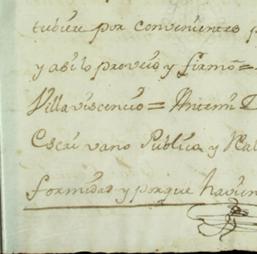 tubiere por convenientes
y asi lo proveio y firmó =
Villavisencio = Antemi
Escrivano Publico y Real
formidad y porque havien